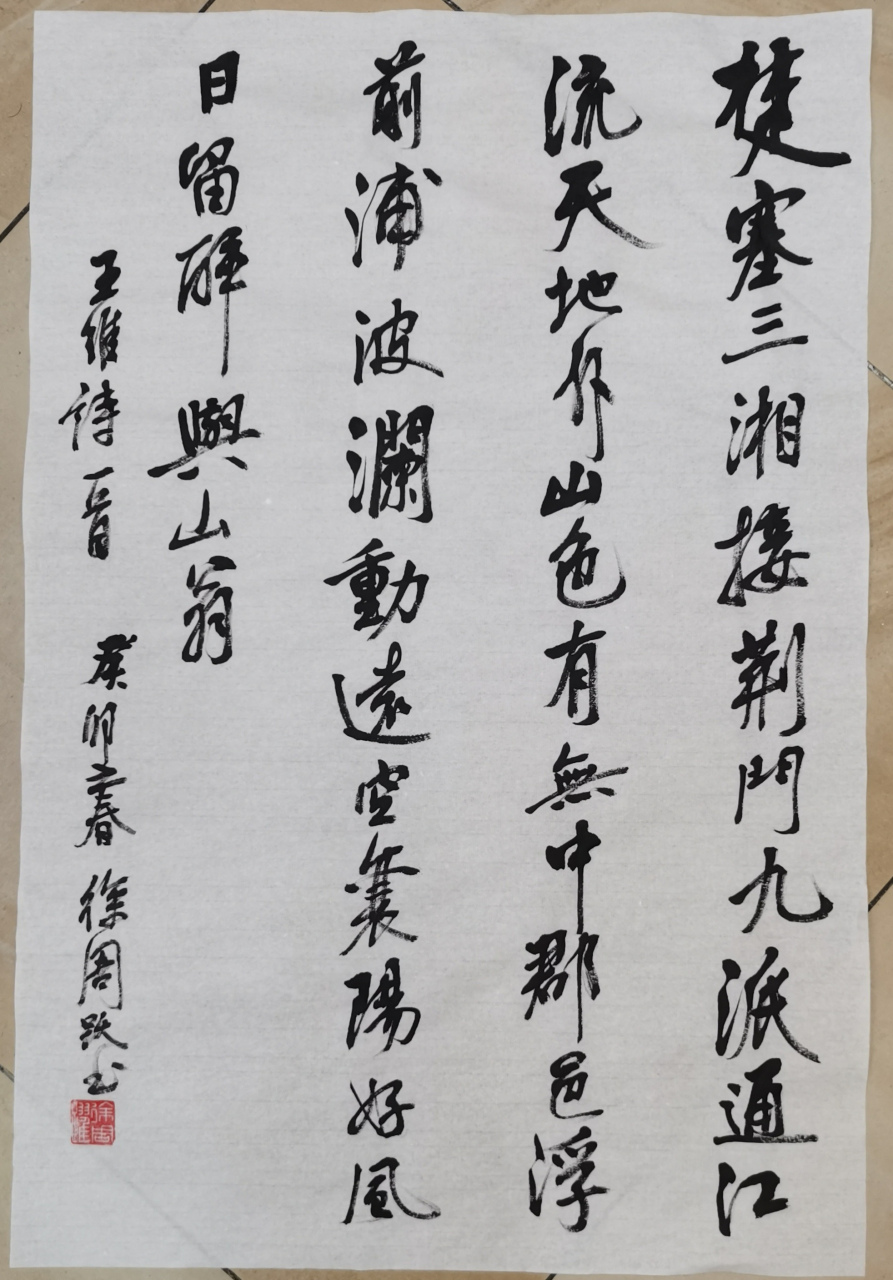 楚塞三湘接荆門九派通江
流天地外山色有無中郡邑浮
前浦波瀾動遠空襄陽好風
日留醉與山翁
王維詩一首 癸卯春 徐周跃书